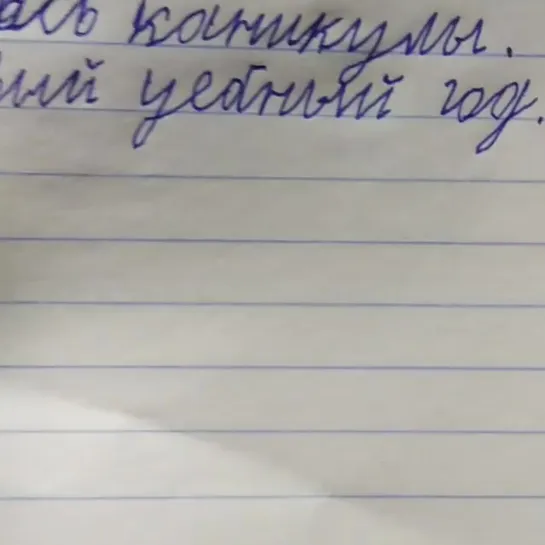 ась каникулы.
ый уебный год.